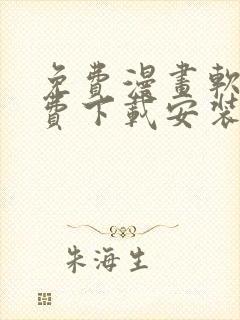 免費漫畫軟
費下載安裝
朱海生